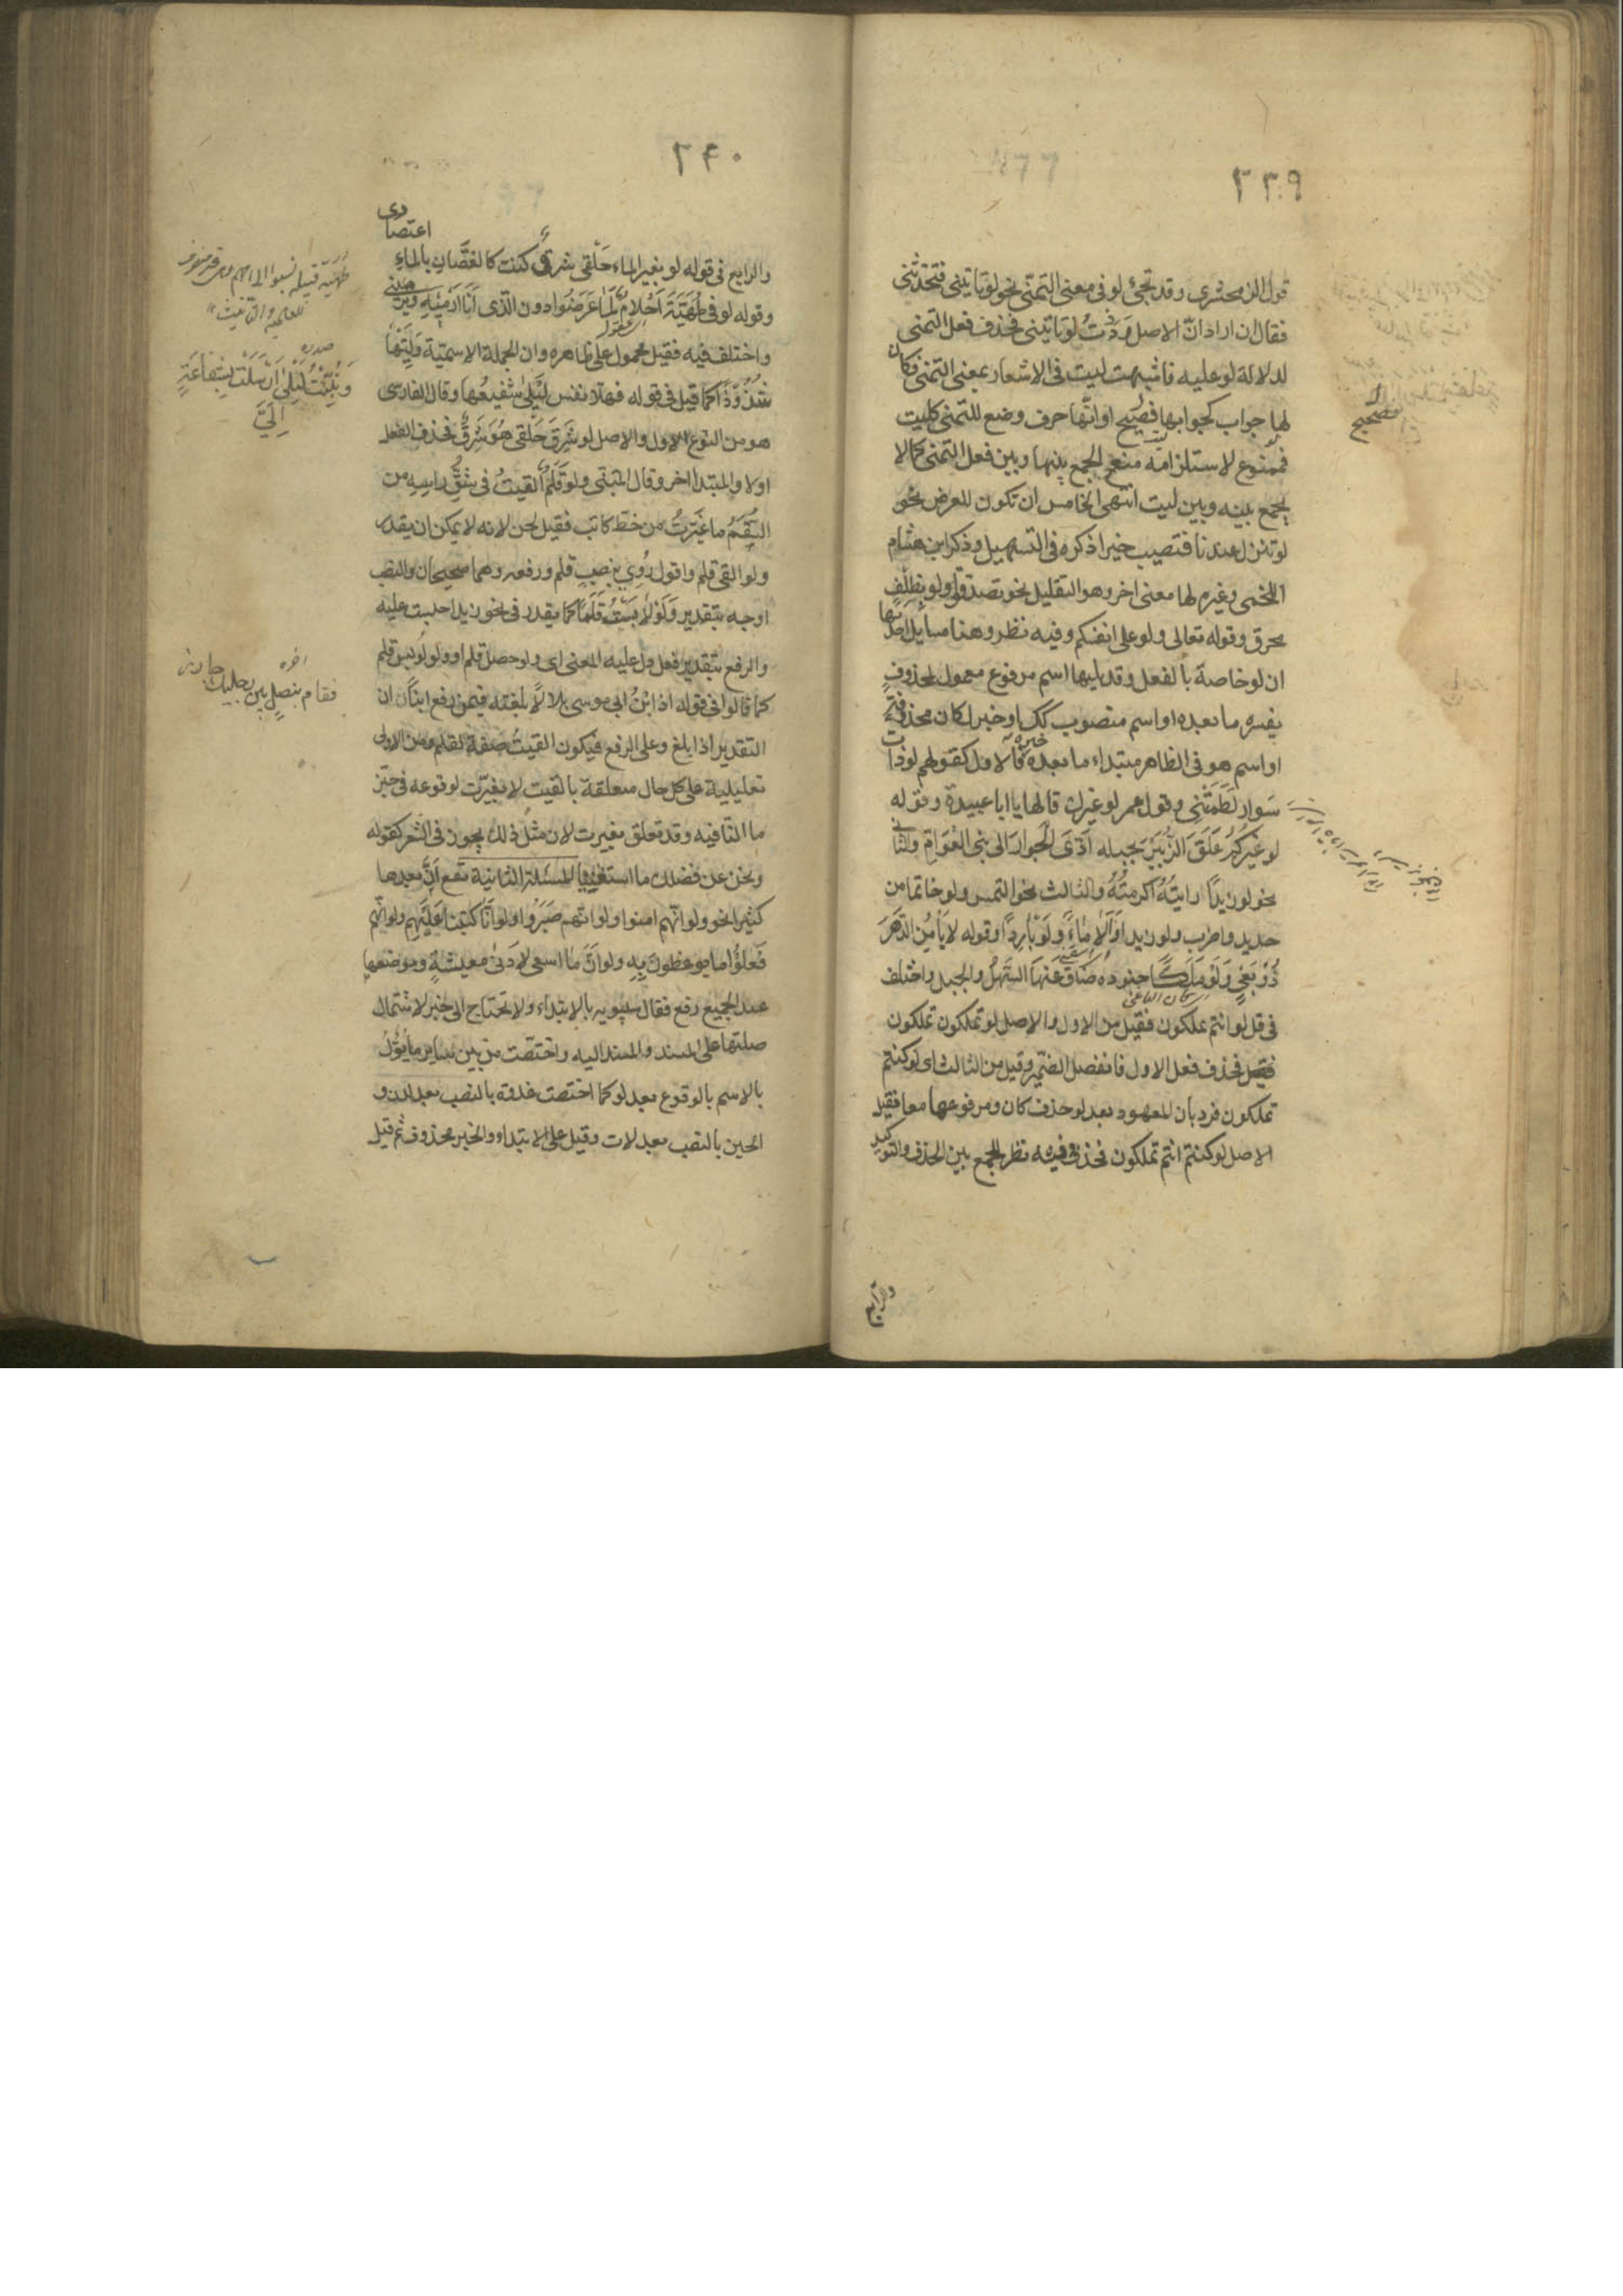 ٣٣٩
قول الزمخشرى وقد تجئ لو فى معنى التمنّى نحو لو تاتينى فتحدثنى
فقال ان اراد انّ الاصل وَدِدْتُ لو تاتينى فحذف فعل التمنى
لدلالة لو عليه فاشبهت ليت فى الاشعار بمعنى التمنى فكان
لها جواب كجوابها فصَحيح او انّها حرف وضع للتمنى كليت
فممنوع لاستلزامه منع الجمع بينها وبين فعل التمنى كما لا
يجمع بينه وبين ليت انتهى الخامس ان تكون للعرض نحو
لو تنزل عندنا فتصيب خيرا ذكره فى التسهيل وذكر ابن هشام
اللخمى وغيره لها معنى اخر وهو التقليل نحو تصدقوا ولو بظِلْفٍ
محرق وقوله تعالى ولو على انفسكم وفيه نظر وهنا مسايل احدَيها
ان لو خاصة بالفعل وقد يليها اسم مرفوع معمول لمحذوفٍ
يفسره ما بعده او اسم منصوب كك او خبر لكان محذوفة
او اسم هو فى الظاهر مبتداء ما بعده خبره فالاول كقولهم لو ذات
سَوار لَطَمَتْنِى وقول عمر لو غيرك قالها يا ابا عبيدة وقوله
لو غَيْرُكُم عَلَقَ الزُّبَيْرُ بحبله اَدَّى الجِوارَ الى بنى العَوّامِ والثانى
نحو لو زيدًا رايتُهُ اكرمتُهُ والثالث نحو التمس ولو خاتما من
حديد واضرب ولو زيدا وَاَلا مَاءً ولَوْ بارِدًا وقوله لا يَأْمَنُ الدَّهرَ
ذُوْ بَغْىٍ وَلَوْ مَلِكًا جنوده ضَاقَ عَنْهَا السَّهْلُ والجبل واختلف
فى قل لو انتم تملكون فقيل من الاول والاصل لو تملكون تملكون
فحذف فعل الاول فانفصل الضمير وقيل من الثالث اى لو كنتم
تملكون فرد بان المعهود بعد لو حذف كان ومرفوعها معا فقيل
الاصل لو كنتم انتم تملكون فحذفا وفيه نظر للجمع بين الحذف والتوكيد
والرابع
٣٤٠
اعتصارى
والرابع فى قوله لو بغير الماء حَلْقى شرِقٌ كنت كالغَصَّانِ بالماءِ
وقوله لو فى طُهَيَّةَ اَحْلامٌ لَمَا عَرَضُوا دون الّذى اَنَا اَرْمِيْهِ وَيَرْمِيْنى
واختلف فيه فقيل محمول على ظاهره وان الجملة الاسميّة وَلِيَتْها
شُذُوْذًا كما قيل فى قوله فهلّا نفس لَيْلَى شَفيعُها وقال الفارسى
هو من النوع الاول والاصل لو شَرِقَ حَلْقى هُوَ شَرِقٌ فحذف الفعل
اولا والمبتدا اخر وقال المتنبّى ولو قَلَمٌ اُلقيتُ فى شَقِّ راسِهِ من
السُّقْمِ ما غَيَّرتُ من خطّ كاتب فقيل لحن لانه لا يمكن ان يقدر
ولو القى قلم واقول رُوِيَ بنصبِ قلم ورفعه وهما صحيحان والنصب
اوجه بتقدير وَلَوْ لابَسْتُ قَلَمًا كما يقدر فى نحو زيدا حبست عليه
والرفع بتقدير فعل دل عليه المعنى اى ولو حصل قلم او ولو لُوبِسَ قلم
كما قالوا فى قوله اذا ابْنُ ابى موسى بلالًا بلغته فيمن رفع ابنا ان
التقدير اذا بلغ وعلى الرفع فيكون القيتُ صفة لقلم ومن الاولى
تعليلية على كل حال متعلقة بالقيت لا بغيّرت لوقوعه فى حيّز
ما النافيه وقد تعلق بغيرت لان مثل ذلك يجوز فى الشعر كقوله
ونحن عن فضلك ما استغنينا المسئلة الثانية تقع اَنَّ بعدها
كثيرا نحو ولو انّهم امنوا ولو انّهم صَبَرُوا ولو اَنّا كتبنا عَلَيْهِم ولو انّهم
فَعَلُوا ما يوعظون بِهِ ولو اَنَّ ما اسعى لِاَدنى معيشةٍ وموضعها
عند الجميع رفع فقال سيبويه بالابتداء ولا تحتاج الى خبر لاشتمال
صلتها على المسند والمسند اليه واختصّت من بين ساير ما يؤوّل
بالاسم بالوقوع بعد لو كما اختصت غدوة بالنصب بعد لدن و
الحين بالنصب بعد لات وقيل على الابتداء والخبر محذوف ثم قيل
صدره
وَنُبِّئْتُ لَيْلى اَرْسَلَتْ بِشَفاعَةٍ
اِلَىَّ
اخره
فقام بنصل بين وصليك جازر